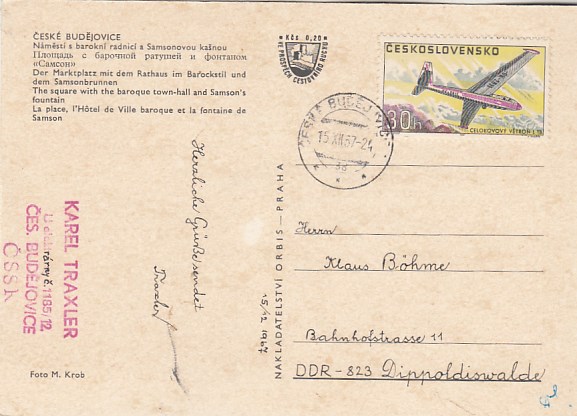 ČESKÉ BUDĚJOVICE
Náměstí s barokní radnicí a Samsonovou kašnou
Площадь с барочной ратушей и фонтаном
«Самсон»
Der Marktplatz mit dem Rathaus im Barockstil und
dem Samsonbrunnen
The square with the baroque town-hall and Samson's
fountain
La place, l'Hôtel de Ville baroque et la fontaine de
Samson
Kčs 0,20
VE PROSPĚCH CESTOVNÍHO RUCHU
ČESKOSLOVENSKO
30 h
CELOKOVOVÝ VĚTROŇ L 13
ČESKÉ BUDĚJOVICE
15.XII.67-24
Herzliche Grüße sendet
Traxler
15/12 1967
KAREL TRAXLER
U elektrárny č. 1185/12
ČES. BUDĚJOVICE
ČSSR
NAKLADATELSTVÍ ORBIS — PRAHA
Herrn
Klaus Böhme
Bahnhofstrasse 11
DDR - 823 Dippoldiswalde
Foto M. Krob